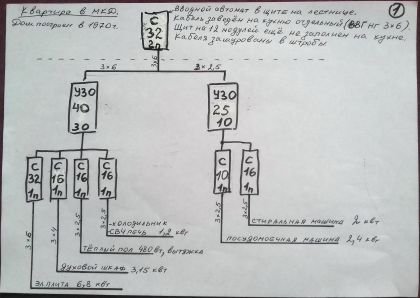 Квартира в МКД.
Дом построен в 1970г.
Вводной автомат в щите на лестнице.
Кабель заведён на кухню отдельный (ВВГнг 3×6).
Щит на 12 модулей ещё не заполнен на кухне.
Кабеля замурованы в штробы
1
С
32
2п
3×6
3×6
3×2,5
УЗО
40
30
УЗО
25
10
С
32
1п
С
16
1п
С
16
1п
С
16
1п
С
10
1п
С
16
1п
3×6
3×4
3×2,5
3×2,5
3×2,5
3×2,5
холодильник
СВЧ печь 1,2 квт
тёплый пол 480вт, вытяжка
духовой шкаф 3,15 квт
эл плита 6,8 квт
стиральная машина 2 квт
посудомоечная машина 2,4 квт